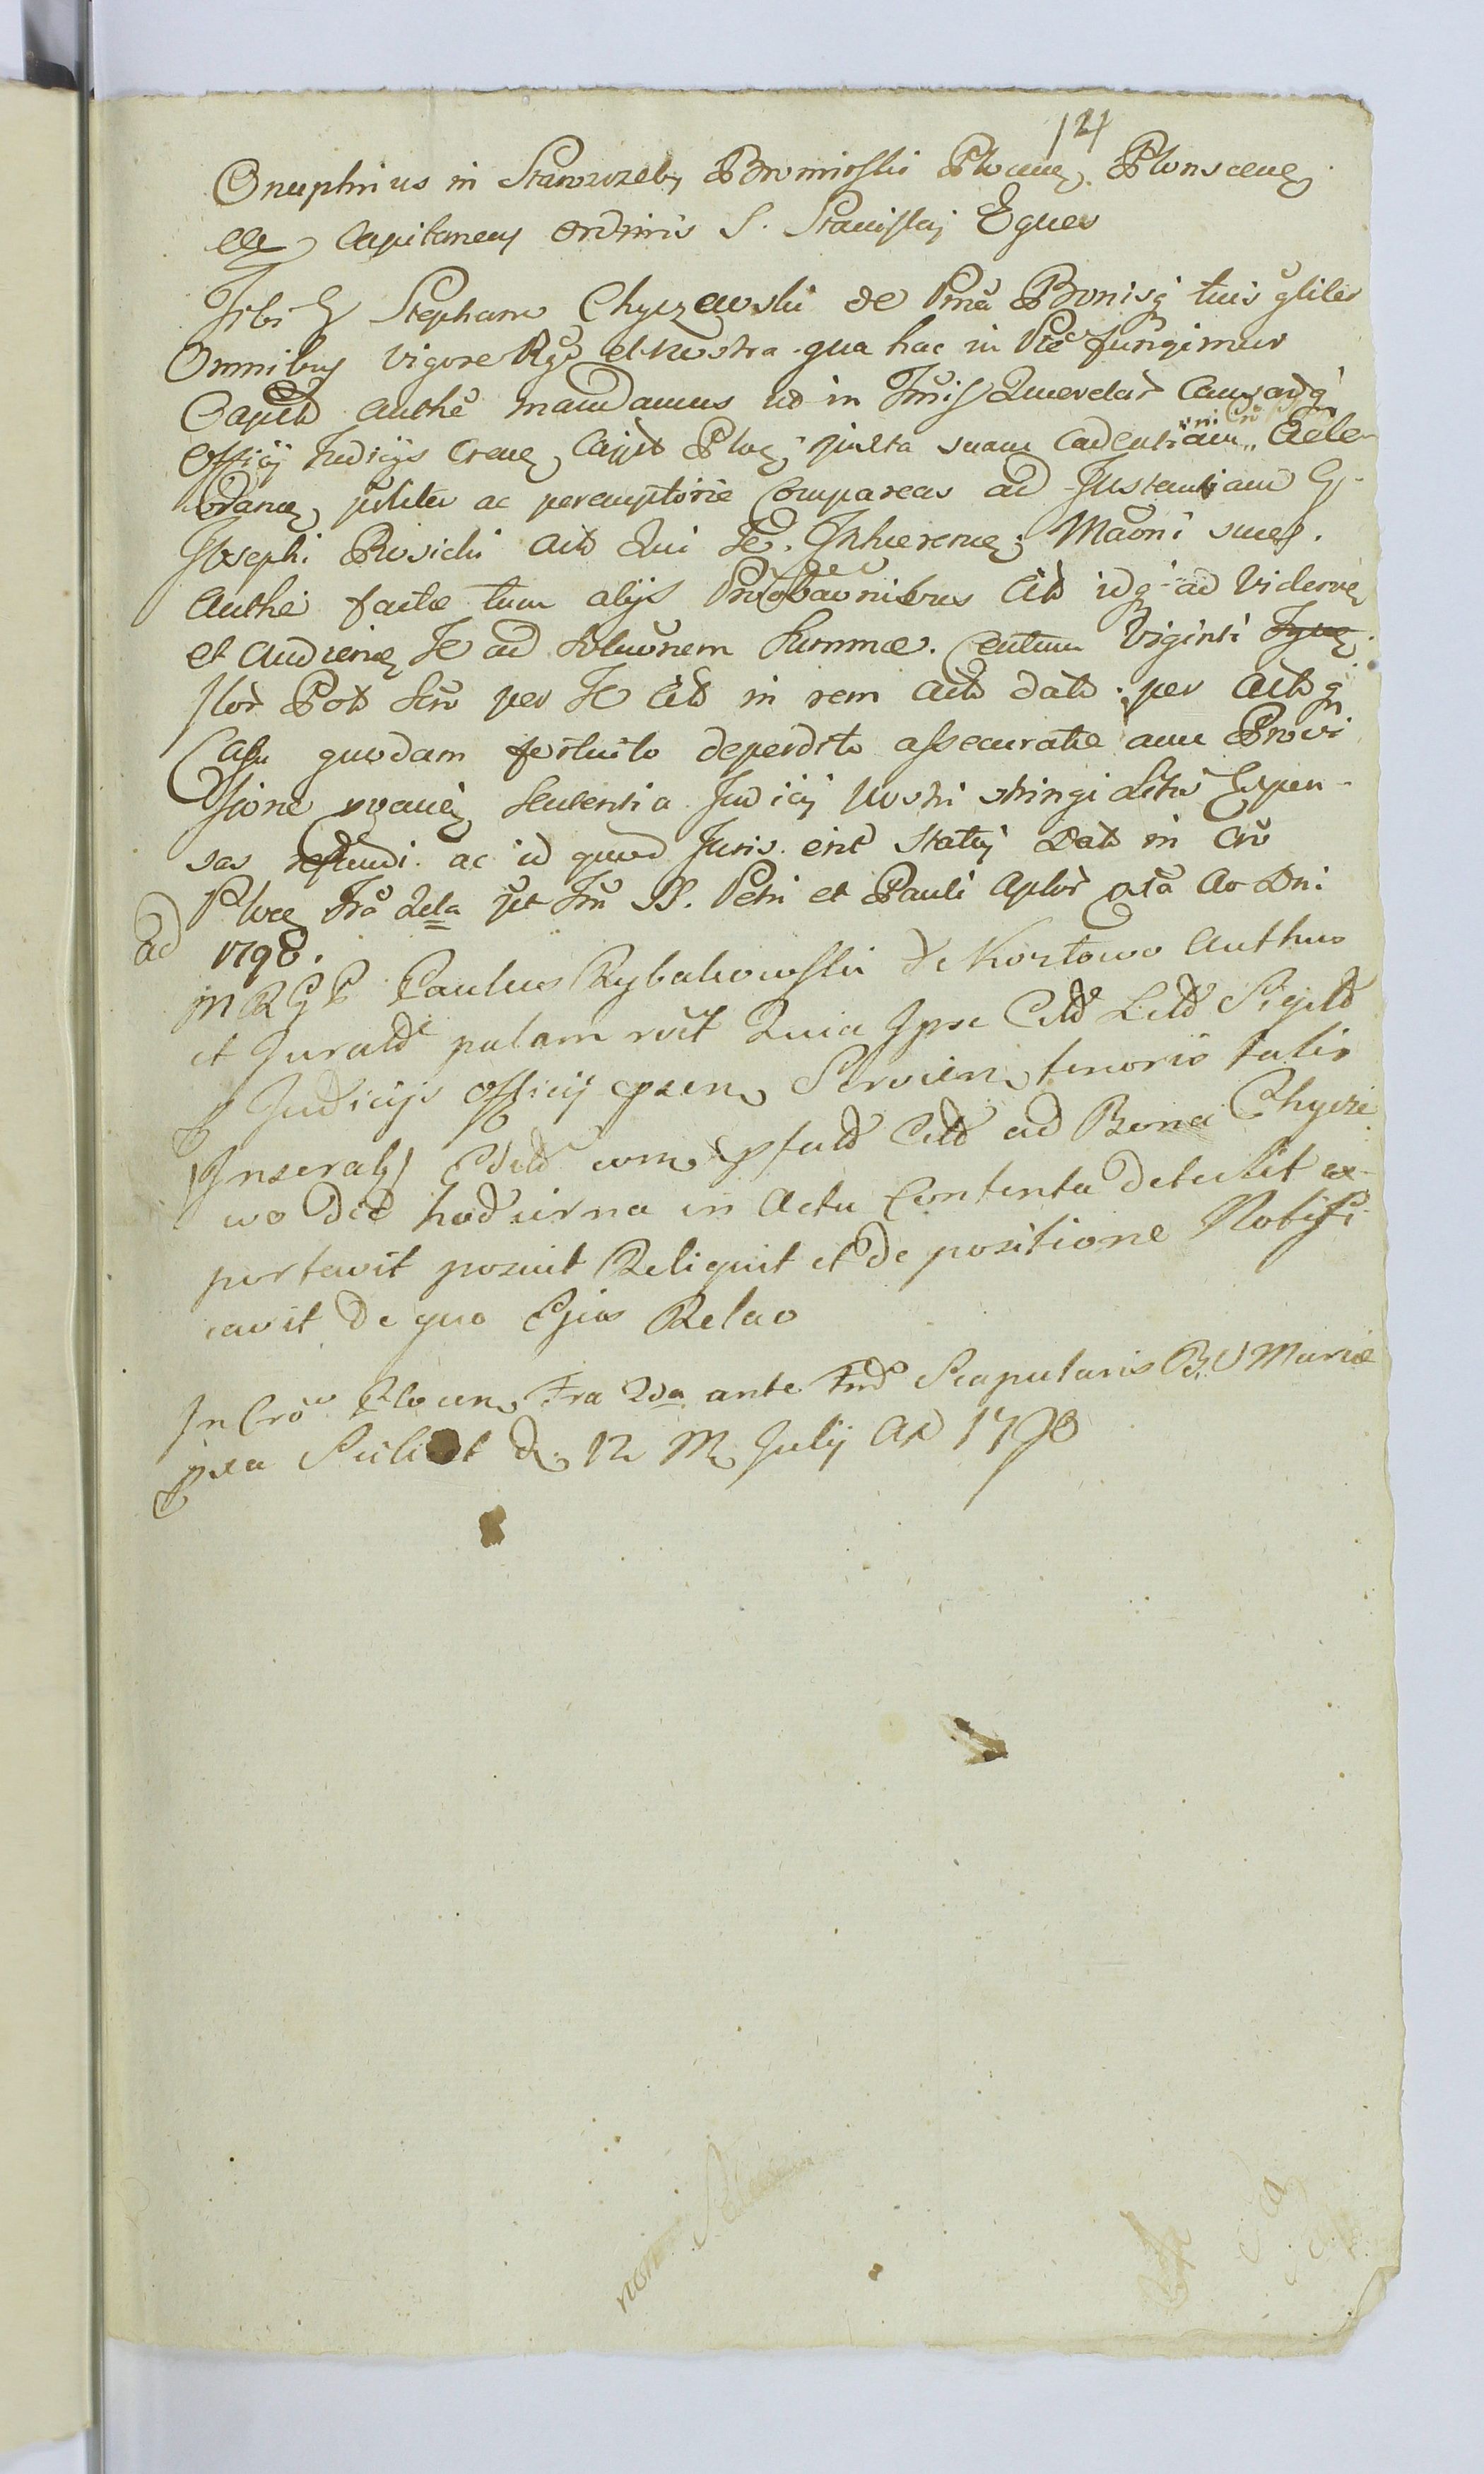 121
Onuphrius in Starorzeby Bromirski Plocens. Plonscens
etc Capitaneus ordinis S. Stanislai Eques
Tibi G Stephano Chyczewski de Psna Bonisq tuis gliter
Omnibus vigore Rga et nostra qua hac in Pte fungimur
Capit authe mandamus ut in Tmis Querelar Causarq
Officij Judicijs Crens Capit Ploc juxta suam Cadentiam Cele-
brand pliter ac peremptorie Compareas ad Instantiam G
Josephi Rosicki act Qui Te Inhaerend Maoni suae
Authe factae tum alijs Probaonibus Cit idq ad Vidend
et Audiend Te ad Soluonem Summae Centum Viginti
flor Pol Scro per Te Cit in rem act dato per actq
Casu quodam fortuito deperdito assecuratae cum Provi
sione Sententia Judicij Nostri stringi Litis Expen-
sas refundi ac id quod Juris erit Statuj Dat in Cro
Ploc Fra 2da pt Fm SS. Petri et Pauli Aplor pxa Ao Dni
ad 1790.
M R G P Paulus Rybakowski de Kortowo Authus
et Juratus palam rcit Quia Ipse Citt Litt Sigilt
Judicijs Officij psens Servien tenoris talis
/Inseratj/ Edit com psfatt Citt ad Bona Chycze
wo die hodierna in Actu Contenta detulit ex-
portavit posuit Reliquit et de positione Notifi-
cavit de quo Ejus Relao
In Cro Plocen Fra 2da ante Fm Scapularis B.V Mariae
pxa Scilicet d. 12 M July AD 1790
non